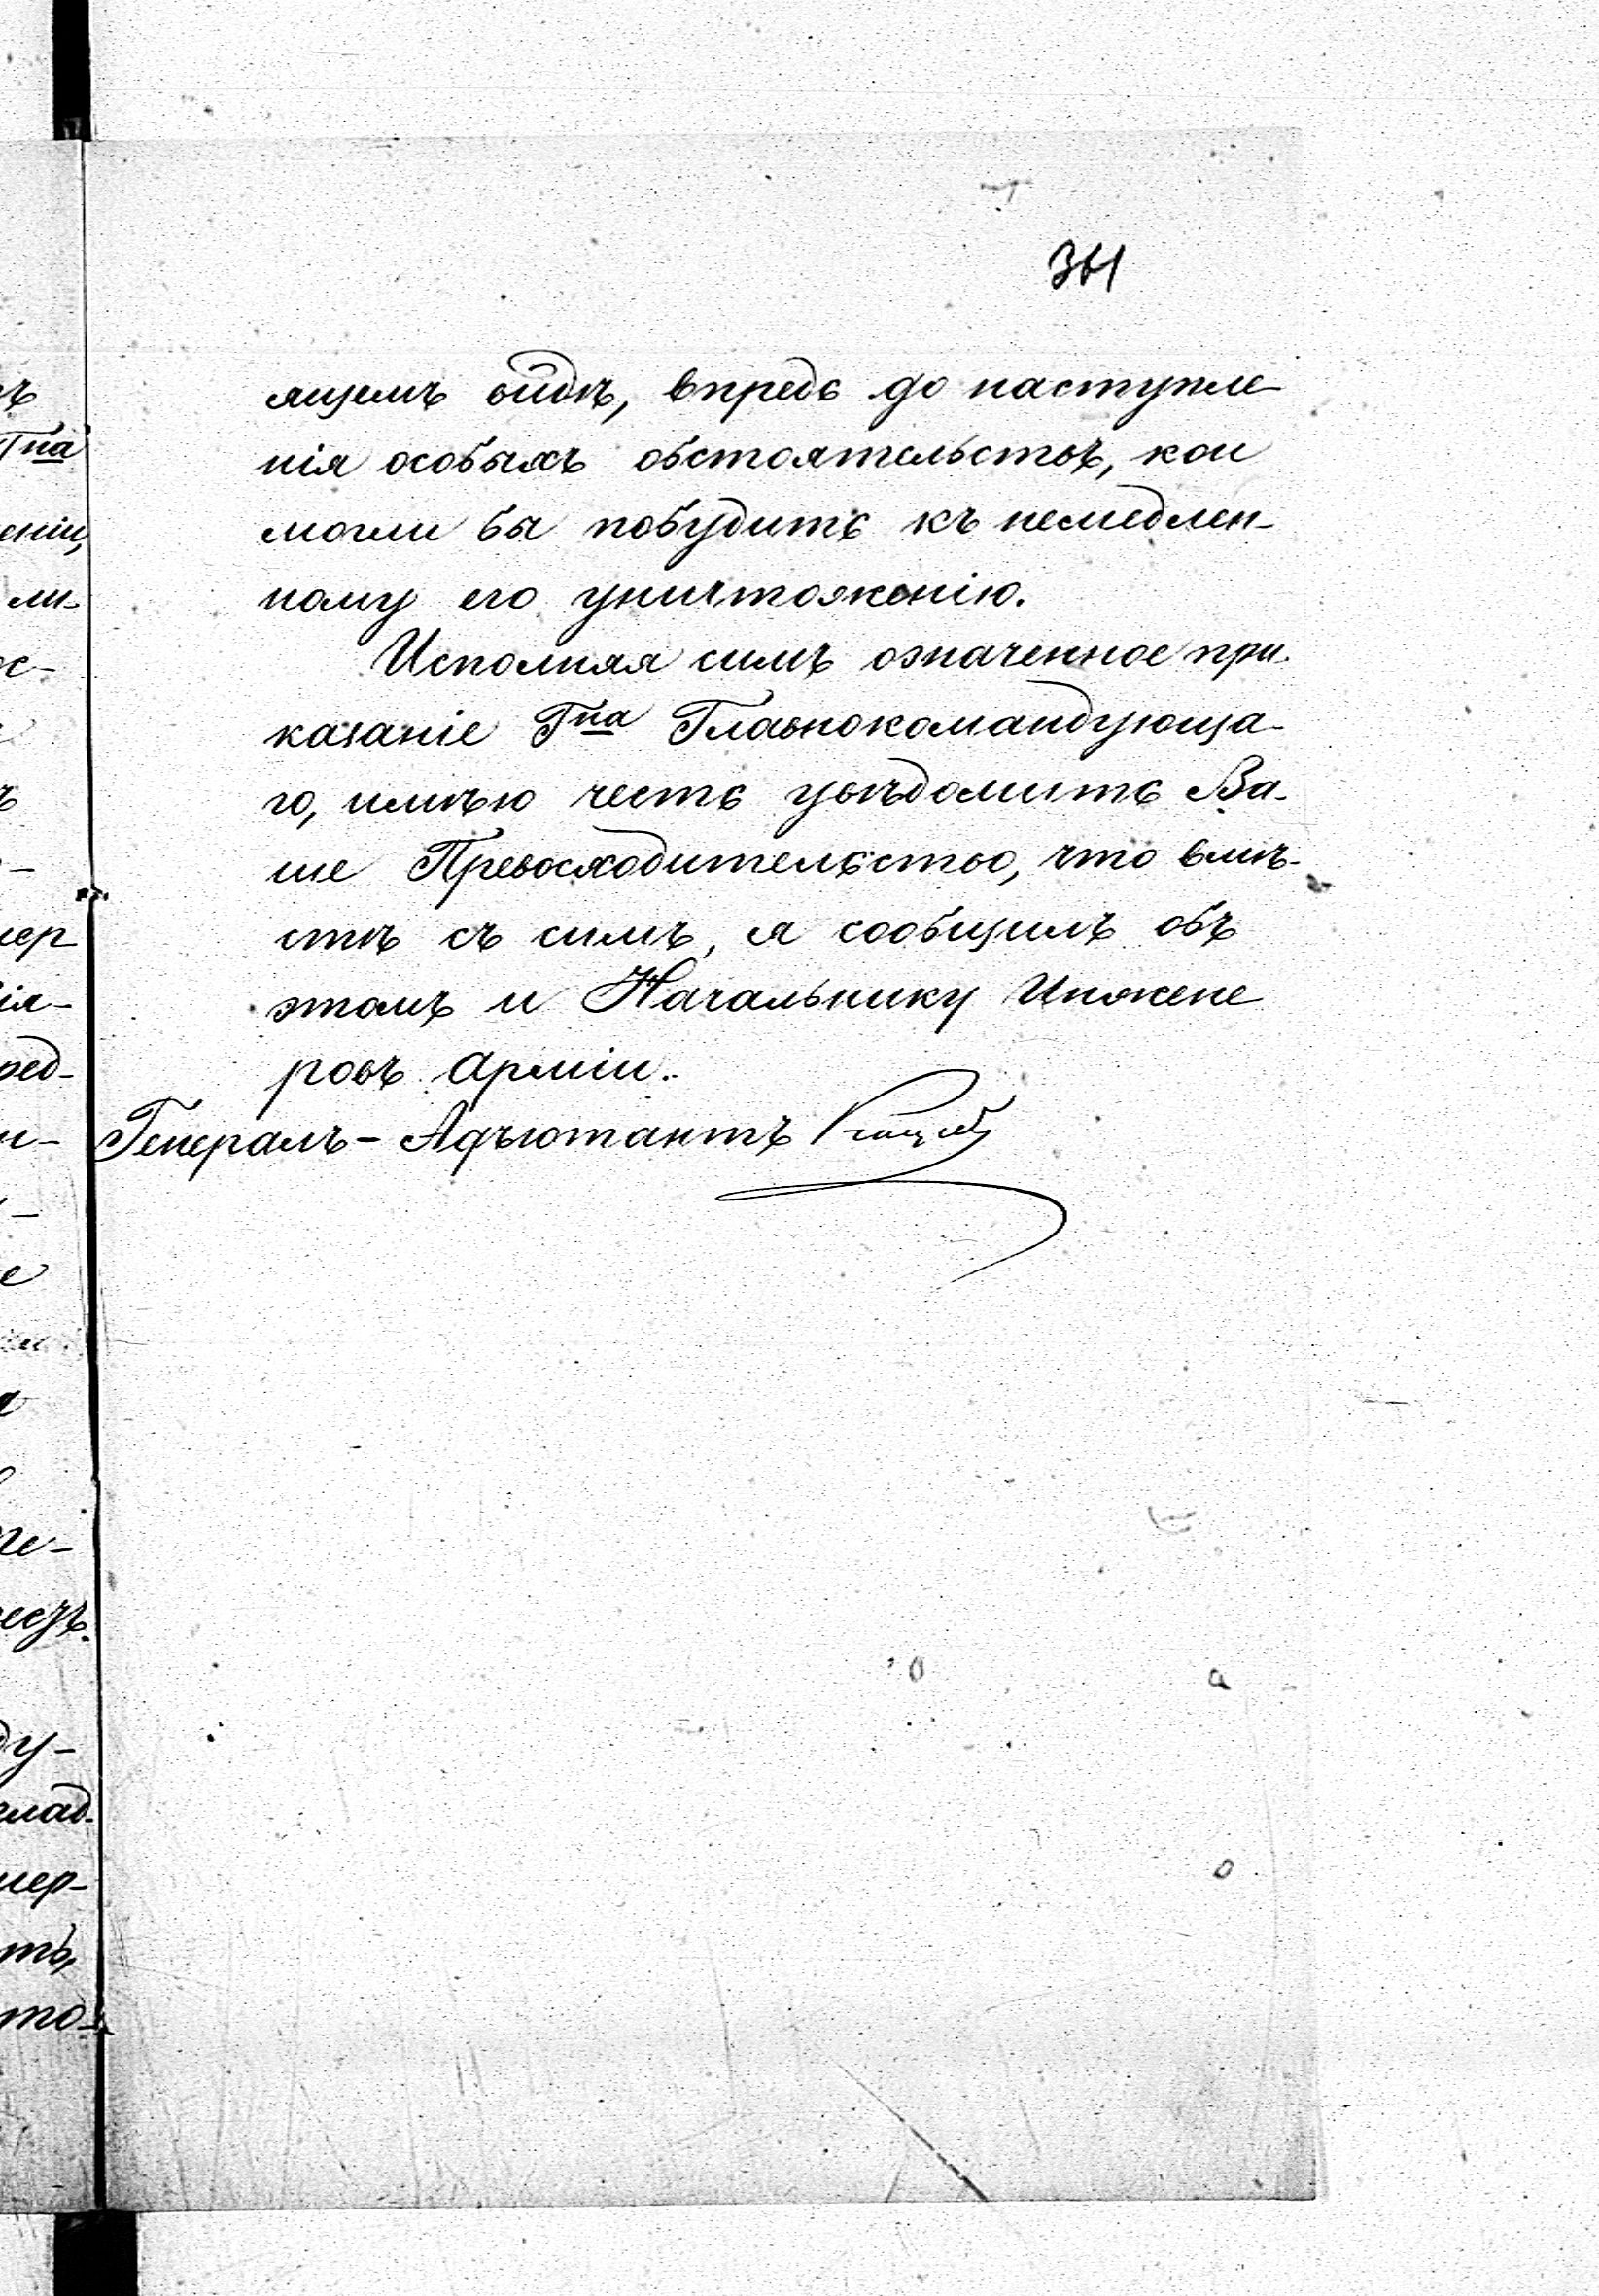 341
ящемъ видѣ, впредь до наступле
нія особыхъ обстоятельствъ, кои
могли бы побудить къ немедлен-
ному его уничтоженію.
Исполняя симъ означенное при-
казаніе Гна Главнокомандующа-
го, имѣю честь увѣдомить Ва-
ше Превосходительство, что вмѣ-
стѣ съ симъ, я сообщилъ объ
этомъ и Начальнику Инжене
ровъ Арміи.
Генералъ-Адъютантъ